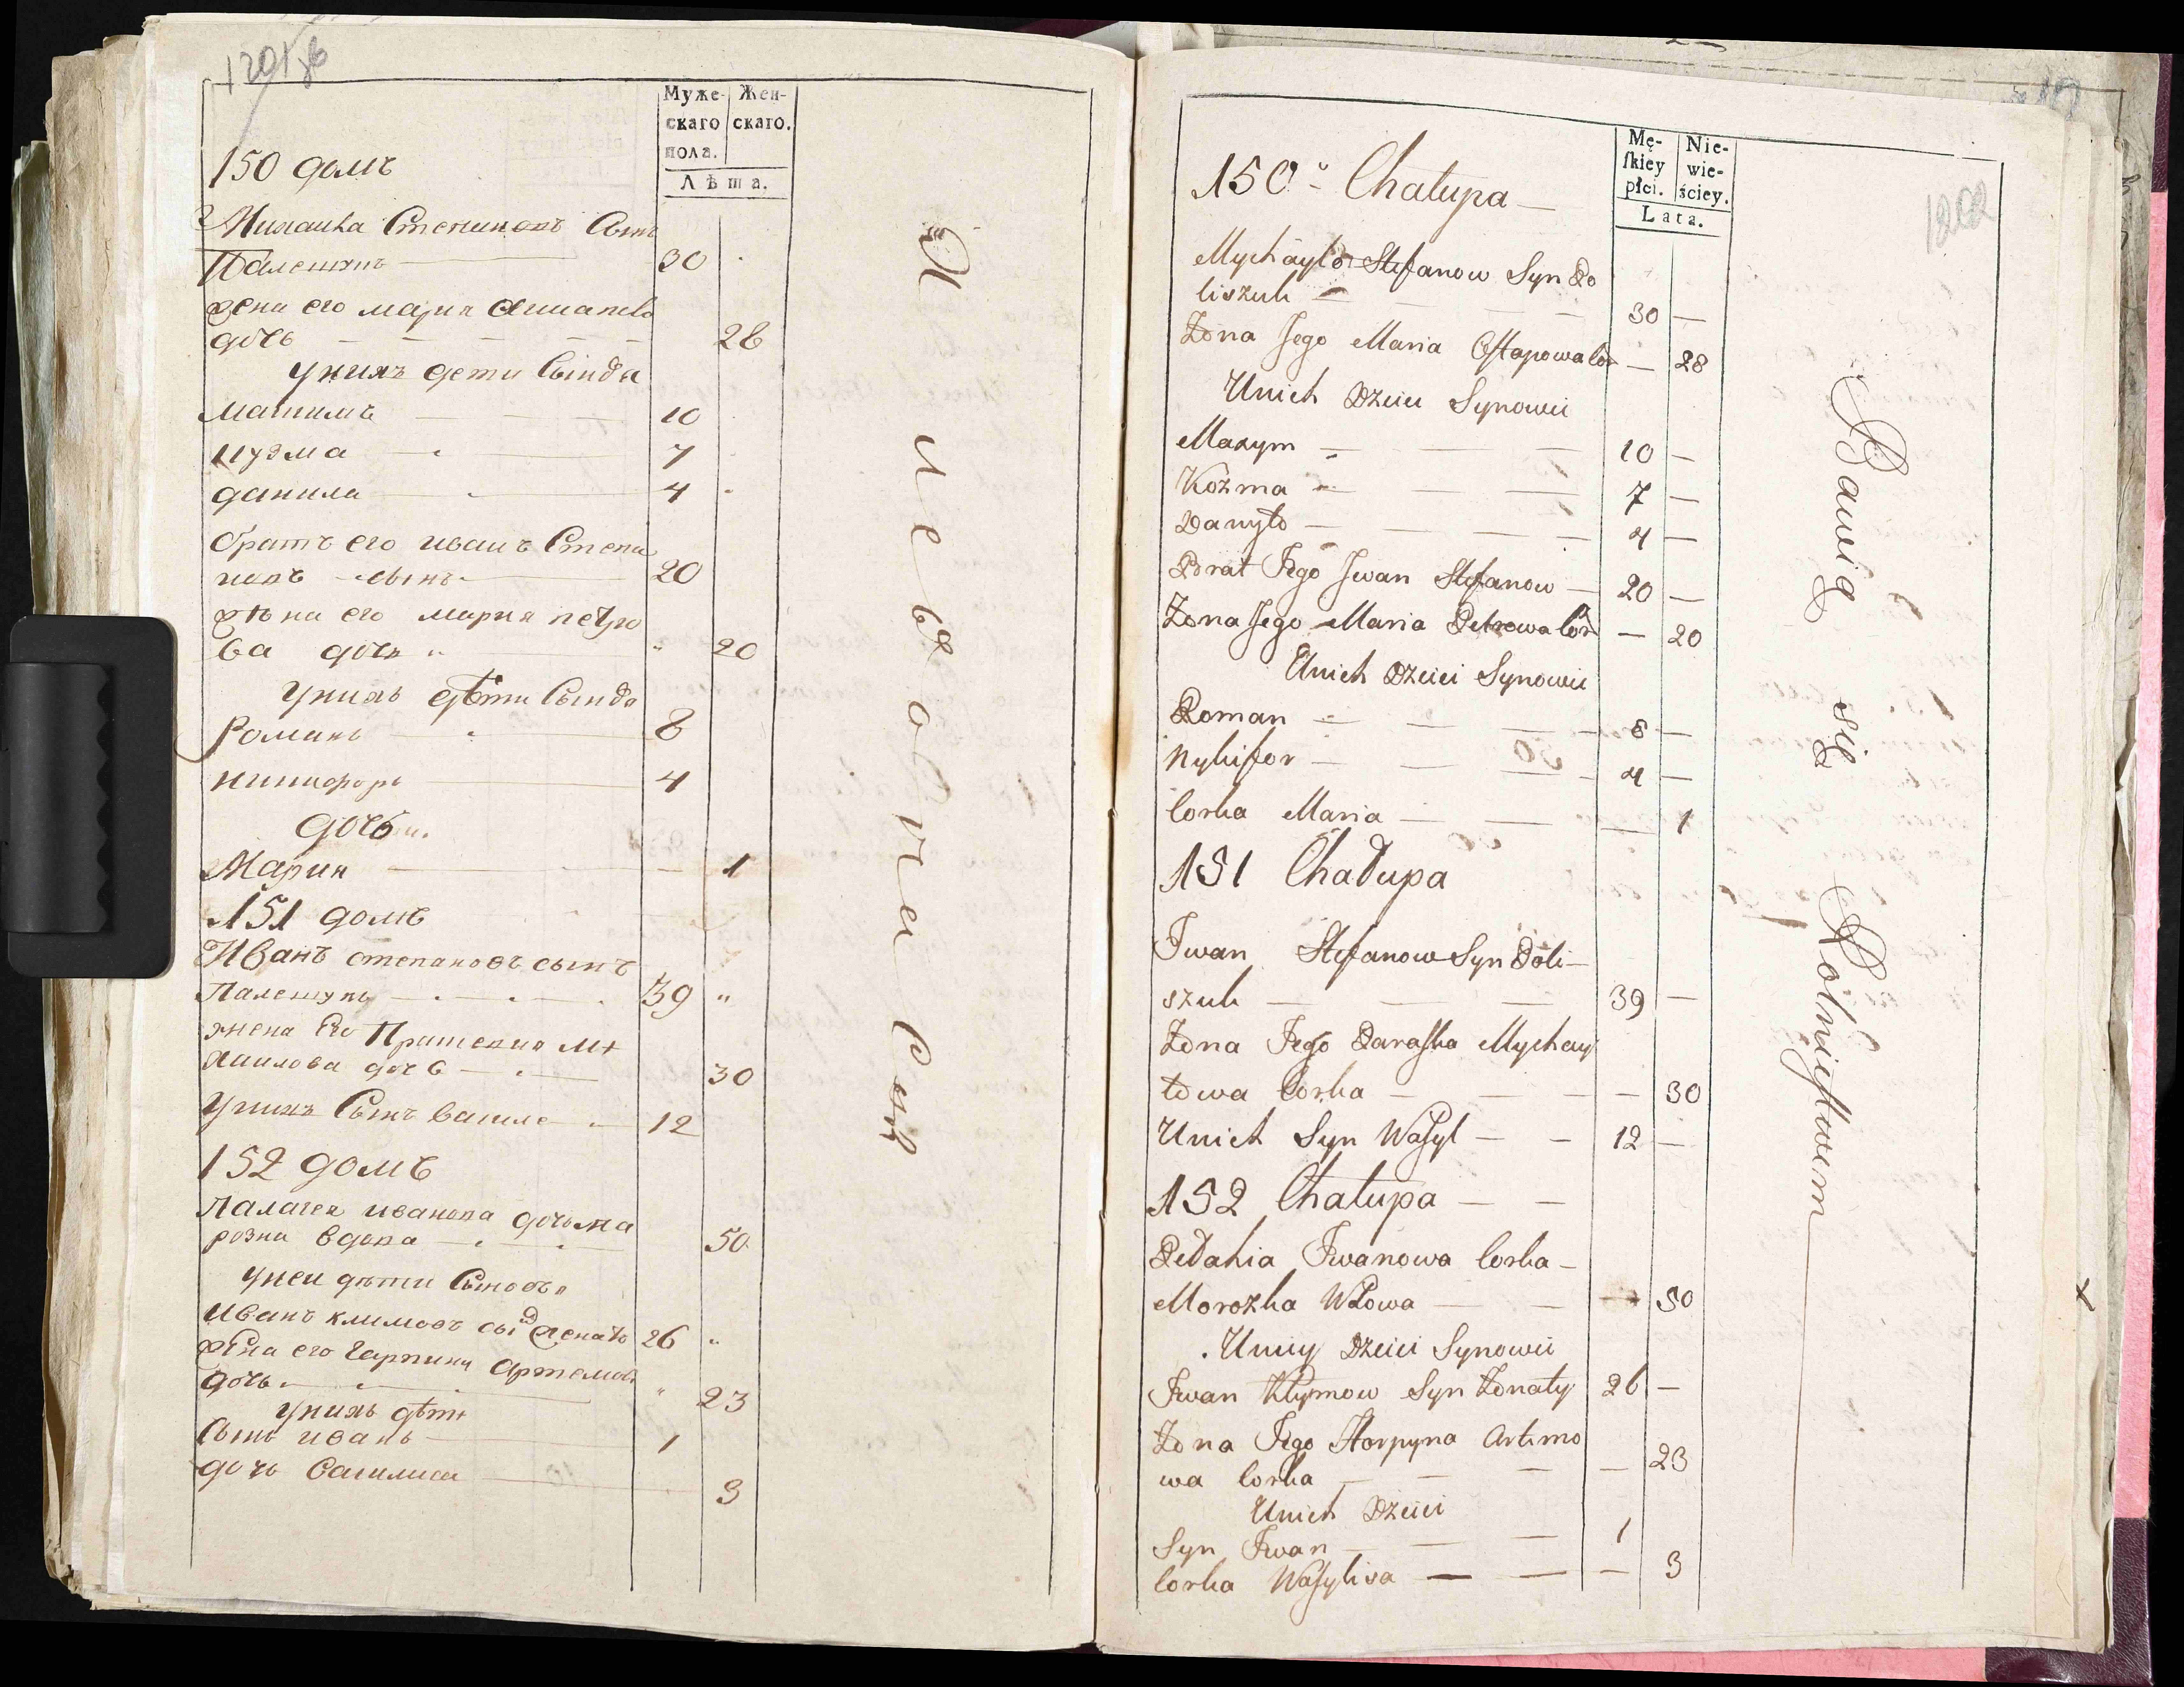 Муже-
скаго
пола.
Жен-
скаго.
Лѣта.
150 домъ
Михаила Степановъ Сынъ
Палешукъ 30
жена его мария
дочь 28
Унихъ дети Сынова
Максимъ 10
кузма 7
данила 4
братъ его иванъ Степа
новъ сынъ 20
жѣна его мария петро
ва дочь 20
Унихъ дѣти Сынова
Романъ 8
никифоръ 4
дочь
Мария 1
151 домъ
Иванъ степановъ сынъ
Палешукъ 39
жена Его Параскевия Ми
хаилова дочь 30
Унихъ Сынъ василе 12
152 домъ
Палагея иванова дочь мо
розка вдова 50
Унеи дѣти Сынова
Иванъ климовъ сынъ женатъ 26
жена его Гарпина Артемова
дочь 23
Унихъ дѣти
Сынъ иванъ 1
дочь василиса 3
Mę-
skiey
płci.
Nie-
wie-
ściey.
Lata.
1202
150 Chałupa
Mychayło Stefanow Syn Po
liszuk 30
Żona Jego Maria Ostapowa Cor 28
Unich Dzieci Synowii
Maxym 10
Kozma 7
Danyło 4
Brat Jego Jwan Stefanow 20
Żona Jego Maria Petrowa Cor 20
Unich Dzieci Synowii
Roman 8
Nykifor 4
Corka Maria 1
151 Chałupa
Jwan Stefanow Syn Poli
szuk 39
Żona Jego Paraska Mychay
łowa Corka 30
Unich Syn Wasyl 12
152 Chałupa
Pełahia Jwanowa Corka
Morozka Wdowa 50
Uniy Dzieci Synowii
Jwan Kłymow Syn Żonaty 26
Żona Jego Horpyna Artimo
wa Corka 23
Unich Dzieci
Syn Jwan 1
Corka Wasylisa 3
Bawią się Rolnictwem